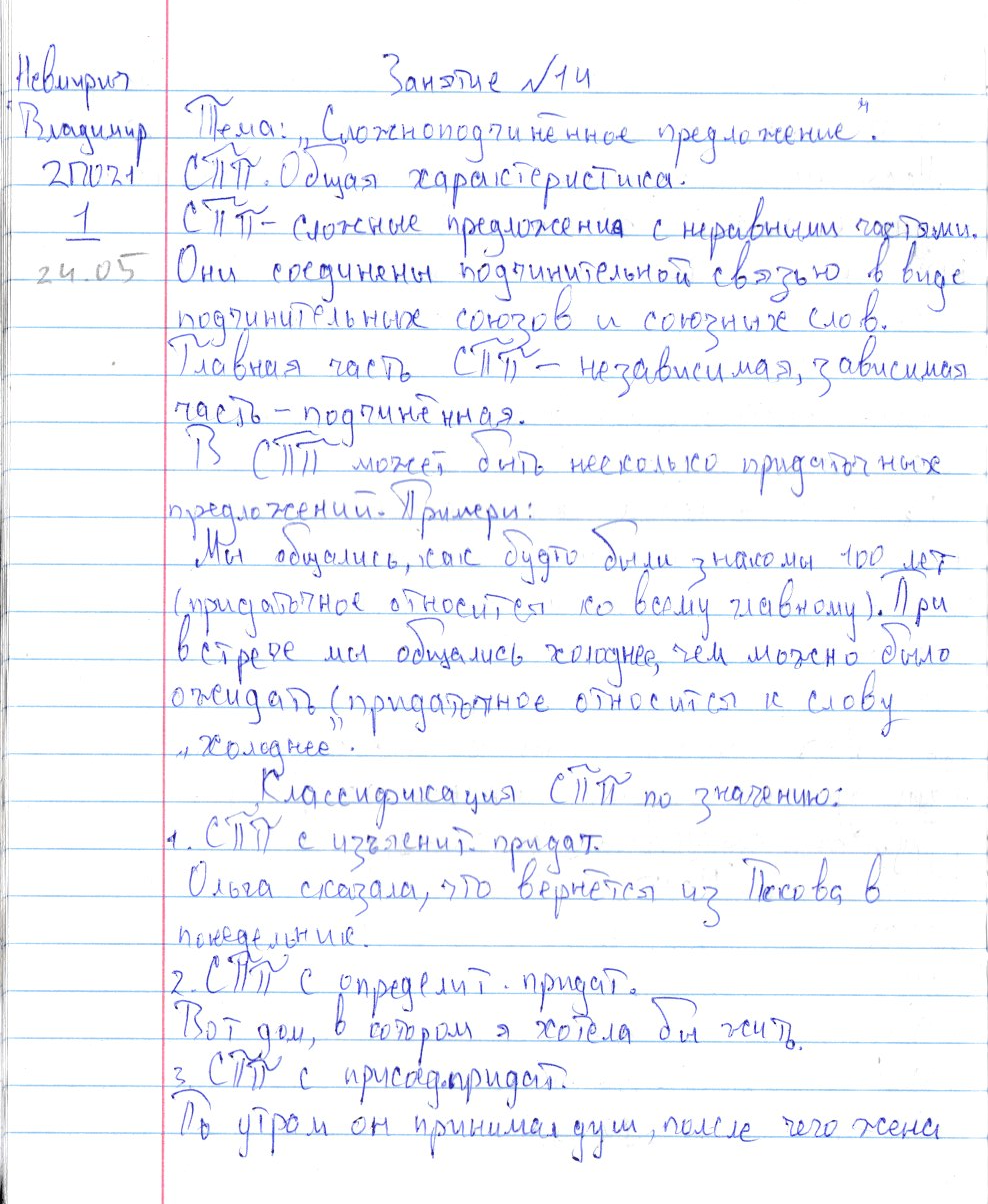 Невмирич
Владимир
2П021
1
24.05
Занятие №14
Тема: „Сложноподчинённое предложение".
СПП. Общая характеристика.
СПП - сложные предложения с неравными частями.
Они соединены подчинительной связью в виде
подчинительных союзов и союзных слов.
Главная часть СПП - независимая, зависимая
часть - подчинённая.
В СПП может быть несколько придаточных
предложений. Примеры:
Мы общались, как будто были знакомы 100 лет
(придаточное относится ко всему главному). При
встрече мы общались холоднее, чем можно было
ожидать (придаточное относится к слову
„холоднее".
Классификация СПП по значению:
1. СПП с изъяснит. придат.
Ольга сказала, что вернётся из Пскова в
понедельник.
2. СПП с определит. придат.
Вот дом, в котором я хотела бы жить.
3. СПП с присоед. придат.
По утром он принимал душ, после чего жена